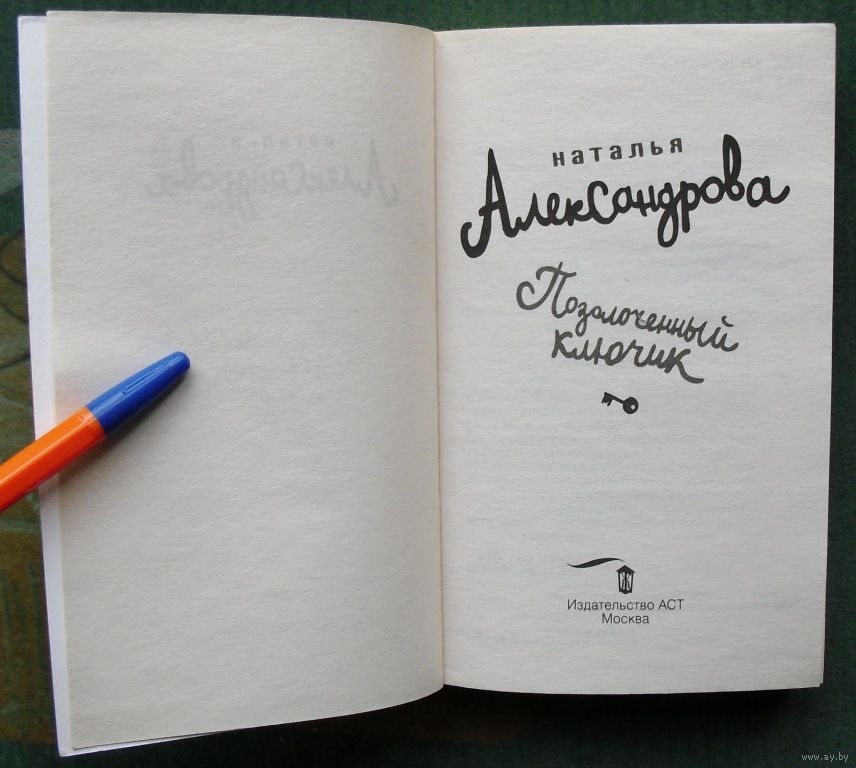 наталья
Александрова
Позолоченный
ключик
Издательство АСТ
Москва
www.ay.by